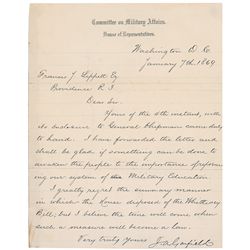 Committee on Military Affairs.
House of Representatives.
Washington D.C.
January 7th 1869
Francis J. Lippitt Esq
Providence R.I.
Dear Sir.
Yours of the 4th instant, with
its enclosure to General Chipman came duly
to hand. I have forwarded the letter and
shall be glad if something can be done to
awaken the people to the importance of reform-
ing our system of Military Education.
I greatly regret the summary manner
in which the House disposed of the Whittlesey
Bill, but I believe the time will come when
such a measure will become a law.
Very truly Yours
J. A. Garfield